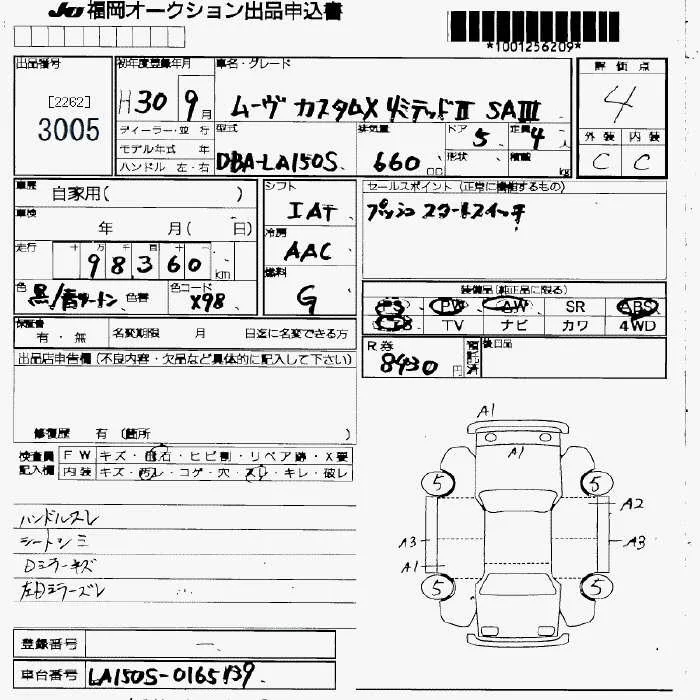 JU 福岡オークション出品申込書
*1001256209*
出品番号
[2262]
3005
初年度登録年月
H30 9月
車名・グレード
ムーヴ カスタムX リミテッドⅡ SAⅢ
評価点
4
外装 内装
C C
ディーラー・並 行
モデル年式 年
ハンドル 左・右
型式
DBA-LA150S
排気量
660 cc
ドア
5
定員
4人
形状
積載
kg
車歴
自家用( )
車検
年 月( 日)
走行
十 万 千 百 十 一
98360 km
色
黒/青ツートン
色替
色コード
X98
シフト
IAT
冷房
AAC
燃料
G
セールスポイント (正常に機能するもの)
プッシュスタートスイッチ
装備品(純正品に限る)
PS PW AW SR ABS
TV ナビ カワ 4WD
R券
8430円
預託済
後日品
保証書
有・無
名変期限 月 日迄に名変できる方
出品店申告欄(不良内容・欠品など具体的に記入して下さい)
修復歴 有 (箇所 )
検査員記入欄
FW キズ・飛石・ヒビ割・リペア跡・X要
内装 キズ・汚レ・コゲ・穴・スレ・キレ・破レ
ハンドルスレ
シートシミ
Dミラーキズ
左Dミラーズレ
A1
A1
5 5
A2
A3 A3
A1
5 5
登録番号
車台番号
LA150S-0165139